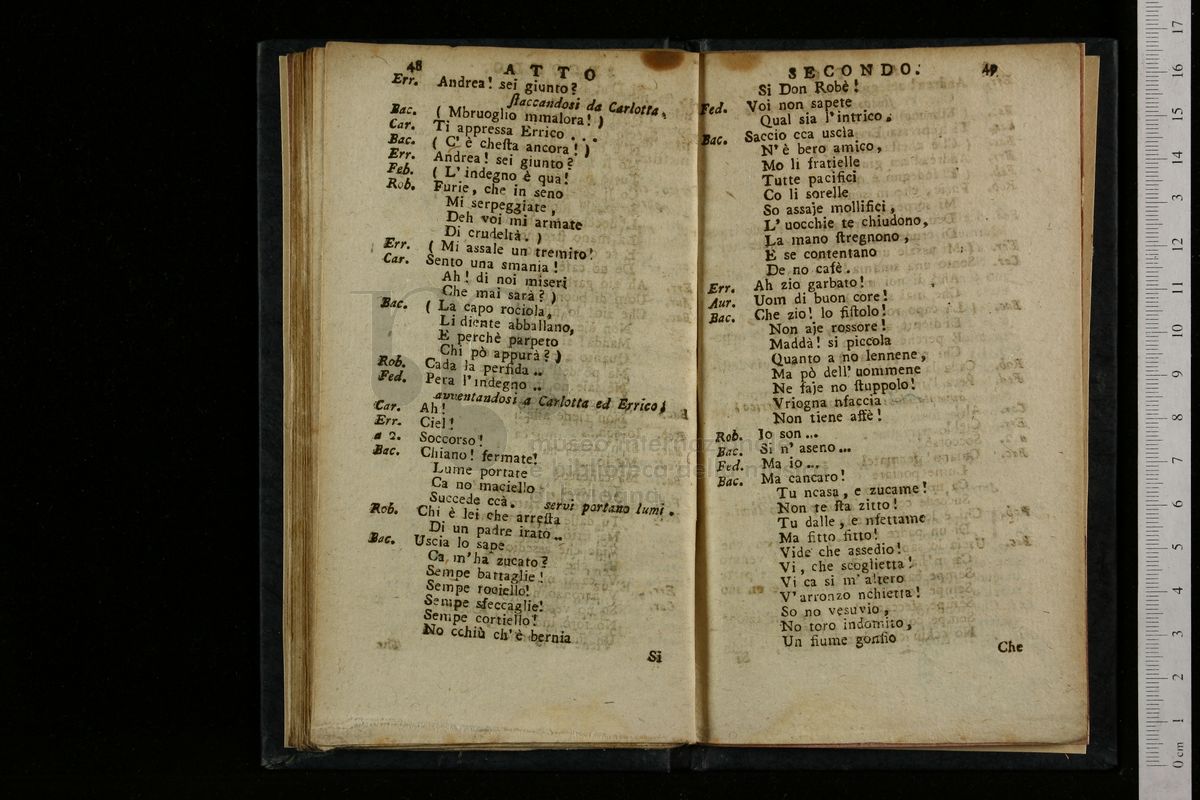 48 ATTO
Err. Andrea! sei giunto?
staccandosi da Carlotta.
Bac. ( Mbruoglio mmalora! )
Car. Ti appressa Errico . . .
Bac. ( C' è chesta ancora! )
Err. Andrea! sei giunto?
Feb. ( L' indegno è quà!
Rob. Furie, che in seno
Mi serpeggiate,
Deh voi mi armate
Di crudeltà. )
Err. ( Mi assale un tremito!
Car. Sento una smania!
Ah! di noi miseri
Che mai sarà? )
Bac. ( La capo rociola,
Li diente abballano,
E perchè parpeto
Chi pò appurà? )
Rob. Cada la perfida ..
Fed. Pera l'indegno ..
avventandosi a Carlotta ed Errico.
Car. Ah!
Err. Ciel!
a 2. Soccorso!
Bac. Chiano! fermate!
Lume portare
Ca no maciello
Succede ccà. servi portano lumi.
Rob. Chi è lei che arresta
Di un padre irato ..
Bac. Uscia lo sape
Ca, m'ha zucato?
Sempe battaglie!
Sempe rociello!
Sempe sfeccaglie!
Sempe cortiello!
No cchiù ch' è bernia
Si
SECONDO. 49
Si Don Robè!
Fed. Voi non sapete
Qual sia l'intrico.
Bac. Saccio cca uscia
N' è bero amico,
Mo li fratielle
Tutte pacifici
Co li sorelle
So assaje mollifici,
L' uocchie te chiudono,
La mano stregnono,
E se contentano
De no cafè.
Err. Ah zio garbato!
Aur. Uom di buon core!
Bac. Che zio! lo fistolo!
Non aje rossore!
Maddà! si piccola
Quanto a no lennene,
Ma pò dell' uommene
Ne faje no stuppolo!
Vriogna nfaccia
Non tiene affè!
Rob. Io son ...
Bac. Si n' aseno ...
Fed. Ma io ...
Bac. Ma cancaro!
Tu ncasa, e zucame!
Non te sta zitto!
Tu dalle, e nfettame
Ma fitto fitto!
Vide che assedio!
Vi, che scoglietta!
Vi ca si m' altero
V' arronzo nchietta!
So no vesuvio,
No toro indomito,
Un fiume gonfio
Che
museo internazionale
e biblioteca della musica
di bologna
0 cm 1 2 3 4 5 6 7 8 9 10 11 12 13 14 15 16 17